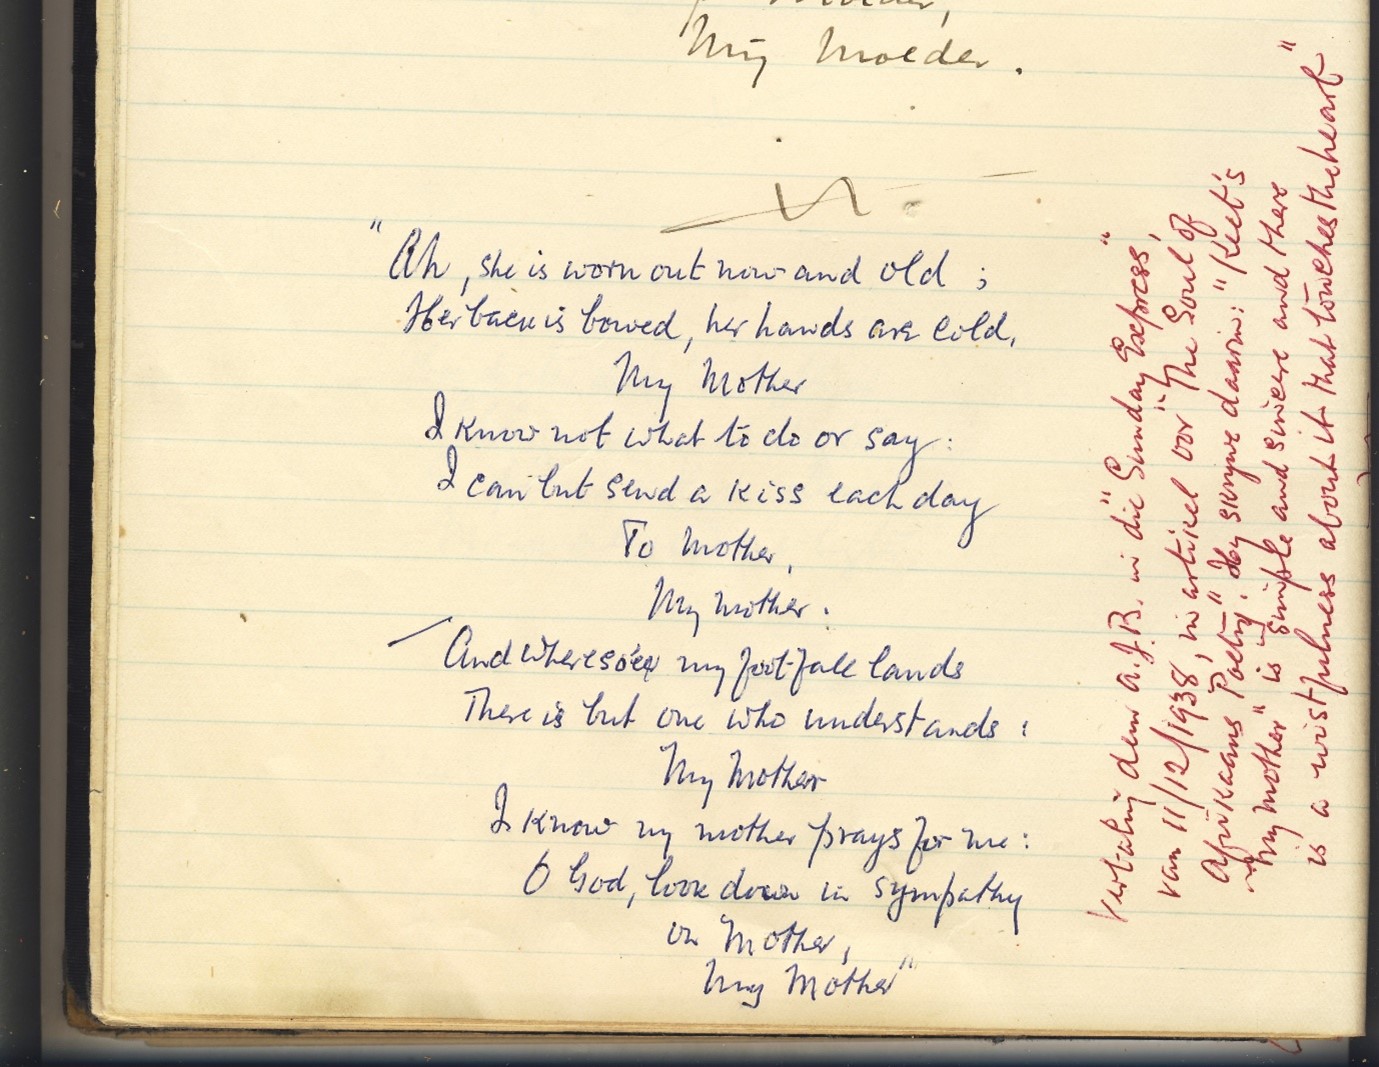 Moeder,
My Moeder.
"Ah, she is worn out now and old;
Her back is bowed, her hands are cold,
My Mother
I know not what to do or say:
I can but send a kiss each day
To Mother,
My mother.
And wheresoe'er my foot-fall lands
There is but one who understands:
My Mother
I know my mother prays for me:
O God, look down in sympathy
on Mother,
My Mother"
Vertaling deur A.J.B. in die "Sunday Express",
van 11/12/1938, in artikel oor "The Soul of
Afrikaans Poetry". Hy skrywe daarin: "Keet's
"My mother" is simple and sincere and there
is a wistfulness about it that touches the heart"